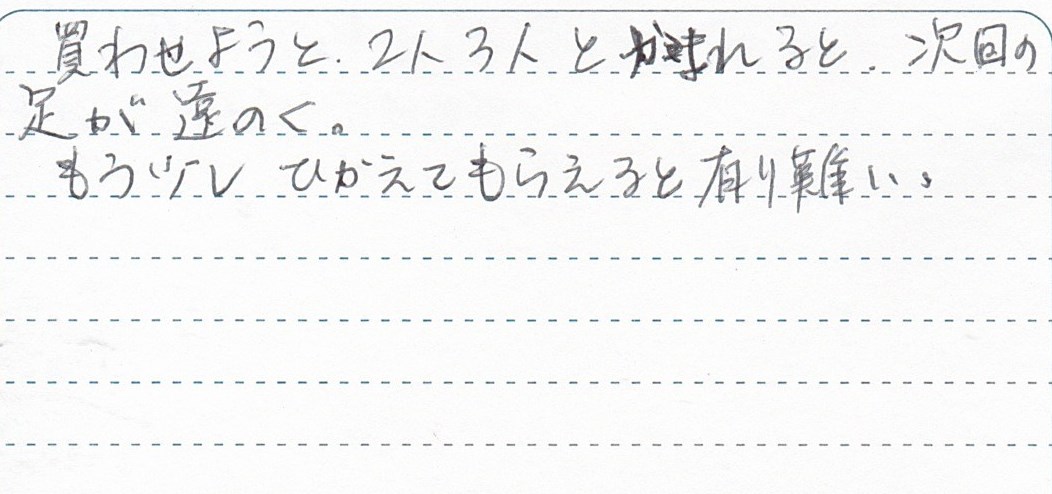 買わせようと、2人3人とかまれると、次回の
足が遠のく。
もう少しひかえてもらえると有り難い。